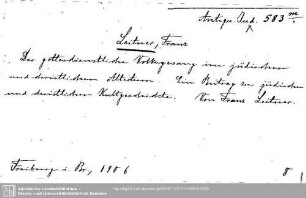 Antiqu. Jud. 583 m
Leitner, Franz
Der gottesdienstliche Volksgesang im jüdischen
und christlichen Altertum. Ein Beitrag zur jüdischen
und christlichen Kultgeschichte. Von Franz Leitner.
Freiburg i. Br., 1906 8
Sächsische Landesbibliothek -
Staats- und Universitätsbibliothek Dresden